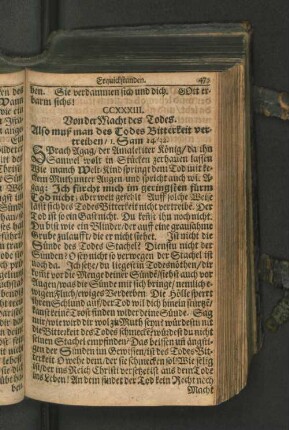 Erquickstunden. 473
ben. Sie verdammen sich und dich. Gott er-
barm sichs!
CCXXXIII.
Von der Macht des Todes.
Also muß man des Todes Bitterkeit ver-
treiben / 1. Sam
Sprach Agag / der Amalekiter König / da ihn
Samuel wolt in Stücken zerhauen lassen
Wie manch Welt-Kind springt dem Tod mit ke-
ckem Muth unter Augen und spricht auch wie A-
gag: Ich fürcht mich im geringsten fürm
Tod nicht; aber weit gefehlt. Auf solche Weise
läst sich des Todes Bitterkeit nicht vertreibẽ. Der
Tod ist so ein Gast nicht. Du kenst ihn noch nicht.
Du bist wie ein Blinder / der auff eine grausahme
Grube zulaufft / die er nicht siehet. Ist nicht die
Sünde des Todes Stachel? Dienstu nicht der
Sünden / O sey nicht so verwegen der Stachel ist
noch da. Ich sehe / du liegest in Todesnöthen / da
komt vor die Menge deiner Sünde / stehst auch vor
Augen / was die Sünde mit sich bringe /
Fluch / ewiges Verderben. Die Höllesperrt
ihren Schlund auf / der Tod wil dich hinein
kanst keine Trost finden wider deine Sünde. Sag
mir / wie wird dir wol zu Muth seyn? würdestu nit
die Bitterkeit des Todes schmecken? würdest du nicht
seinen Stachel empfinden? Das beissen uñ ängsti-
gen der Sünden im Gewissen / ist des Todes Bit-
terkeit O wehe dem / der sie schmecken sol! Wie selig
ist / der ins Reich Christi versetzet ist aus dem Tode
ins Leben! An dem findet der Tod kein Recht noch
Macht